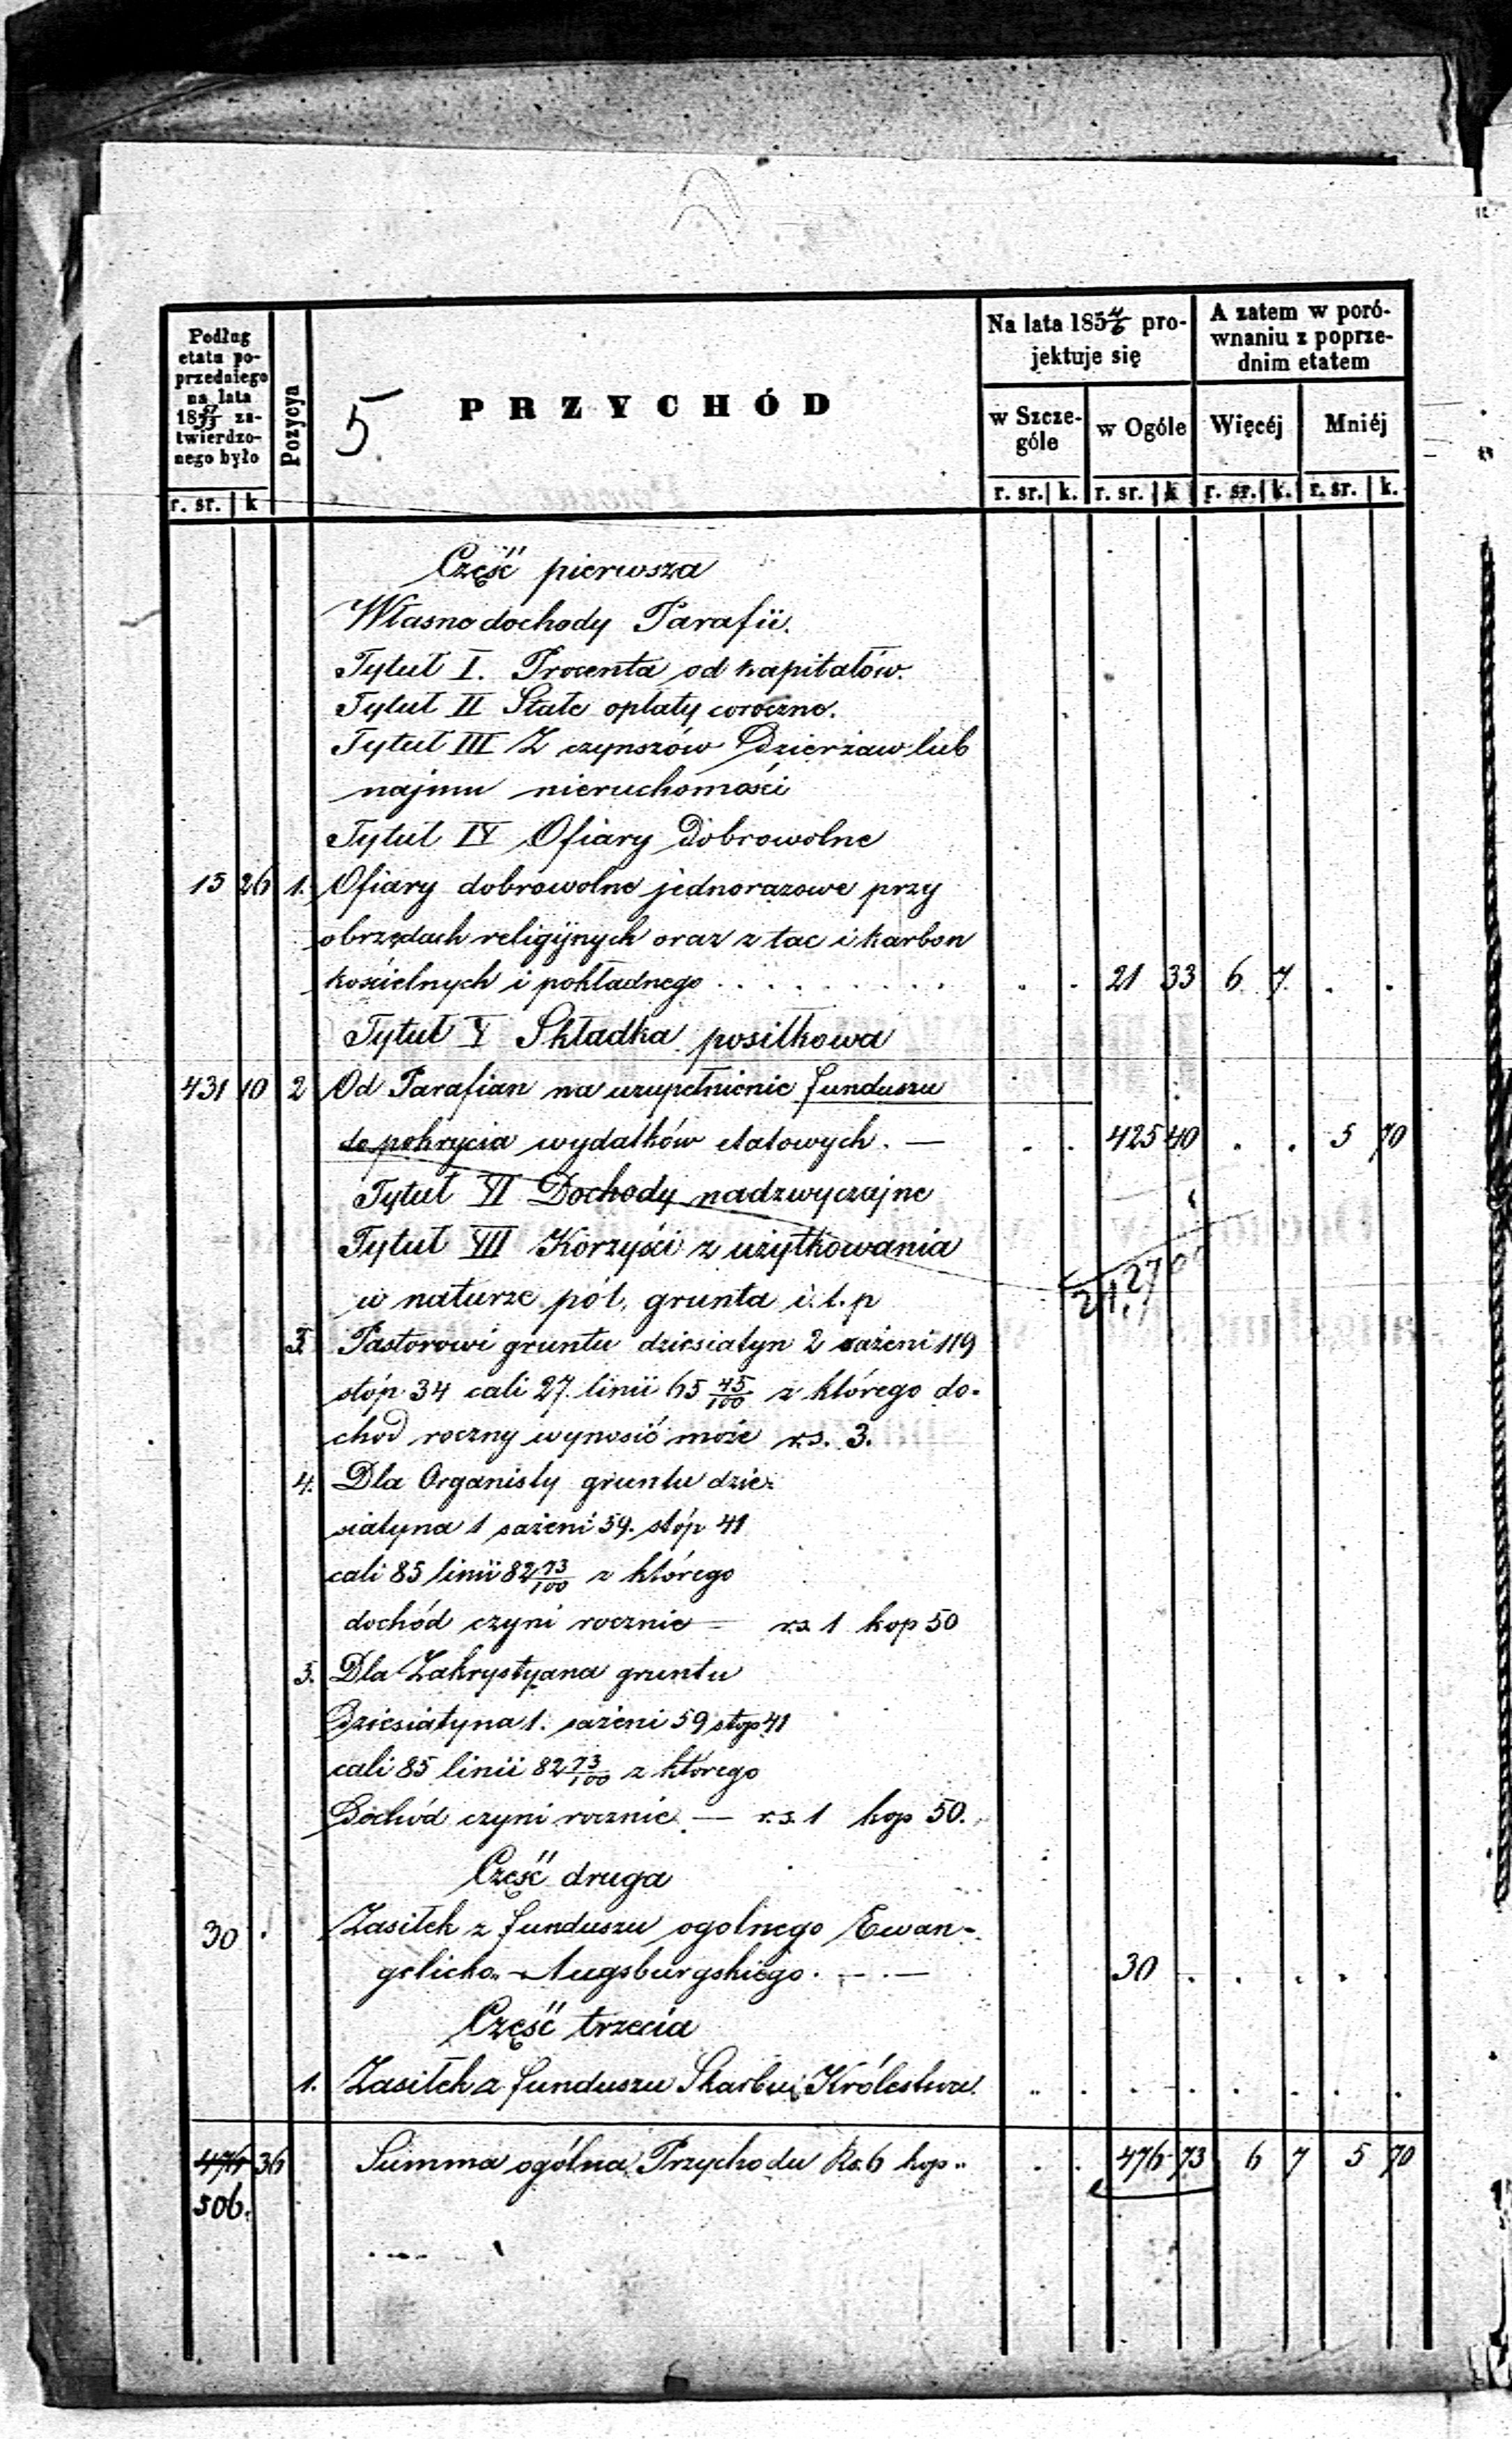 Podług
etatu po-
przedniego
na lata
18 za-
twierdzo-
nego było
r. sr. | k
Pozycya
5 PRZYCHÓD
Na lata 185 4/6 pro-
jektuje się
w Szcze-
góle
w Ogóle
r. sr. | k. r. sr. | k
A zatem w poró-
wnaniu z poprze-
dnim etatem
Więcéj Mniéj
r. sr. | k. r. sr. | k.
Część pierwsza
Własne dochody Parafii.
Tytuł I. Procenta od kapitałów.
Tytuł II Stałe opłaty coroczne.
Tytuł III Z czynszów Dzierżaw lub
najmu nieruchomości
Tytuł IV Ofiary Dobrowolne
15 26 1. Ofiary dobrowolne jednorazowe przy
obrzędach religijnych oraz z tac i karbon
kościelnych i pokładnego . . . . . . . . . 21 33 6 7 . .
Tytuł V Składka posiłkowa
431 10 2 Od Parafian na uzupełnienie funduszu
do pokrycia wydatków etatowych. — . . 425 40 . . 5 70
Tytuł VI Dochody nadzwyczajne
Tytuł VII Korzyści z użytkowania
w naturze pól, grunta i.t.p
3. Pastorowi gruntu dziesiatyn 2 sażeni 119
stóp 34 cali 27. linii 65 45/100 z którego do-
chod roczny wynosić może r.s. 3.
4. Dla Organisty gruntu dzie-
siatyna 1 sażeni 59. stóp 41
cali 85 linii 82 73/100 z którego
dochód czyni rocznie — r.s. 1 kop 50
5. Dla Zakrystyana gruntu
Dziesiatyna 1. sażeni 59 stop 41
cali 85 linii 82 73/100 z którego
Dochód czyni rocznie. — r.s. 1 kop 50.
Część druga
30 . Zasiłek z funduszu ogolnego Ewan-
gelicko-Augsburgskiego. — . — 30 . . . .
Część trzecia
1. Zasiłek z funduszu Skarbu Królestwa. . . . . . . . .
476 36 Summa ogólna Przychodu Rs. 6 kop " . . 476 73 6 7 5 70
506.